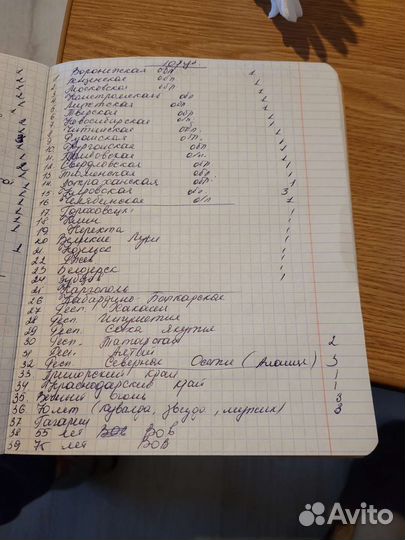 10 руб.
1. Воронежская обл 1
2. Пензенская обл 1
3. Московская обл 1
4. Костромская обл 1
5. Липецкая обл 1
6. Тверская обл 1
7. Новосибирская обл 1
8. Читинская обл 1
9. обл. 1
10. Курганская обл 1
11. обл. 1
12. Свердловская обл. 1
13. Тюменская обл 1
14. Астраханская обл. 1
15. Кировская обл 3
16 Челябинская обл 1
17 Гороховец 1
18 Клин 1
19 Нерехта 1
20 Великие Луки 1
21. Козельск 1
22 Ржев 1
23 Белозерск 1
24 Зубцов 1
Каргополь
26 Кабардино-Балкарская
27 Респ. Хакасия
28 Респ. Ингушетия
29 Респ. Саха Якутия
30 Респ. Татарстан 2
31 Респ. Алтай
32 Респ. Северная Осетия (Алания) 3
33 Приморский край 1
34 Краснодарский край 1
35 Вечный огонь 3
36 70 лет (кувалда, звезда, ) 3
37 Гагарин
38 55 лет ВОВ
39 75 лет ВОВ
Avito